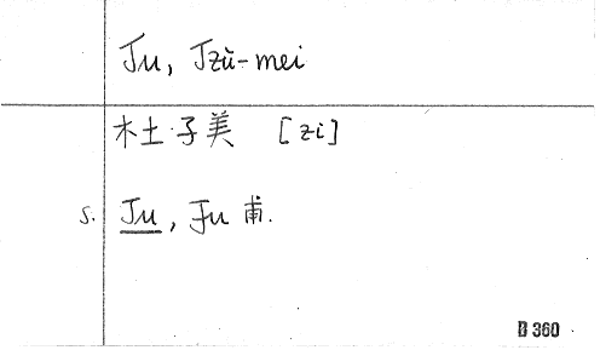 Tu, Tzŭ-mei
杜子美 [zi]
s. Tu, Fu 甫.
B 360